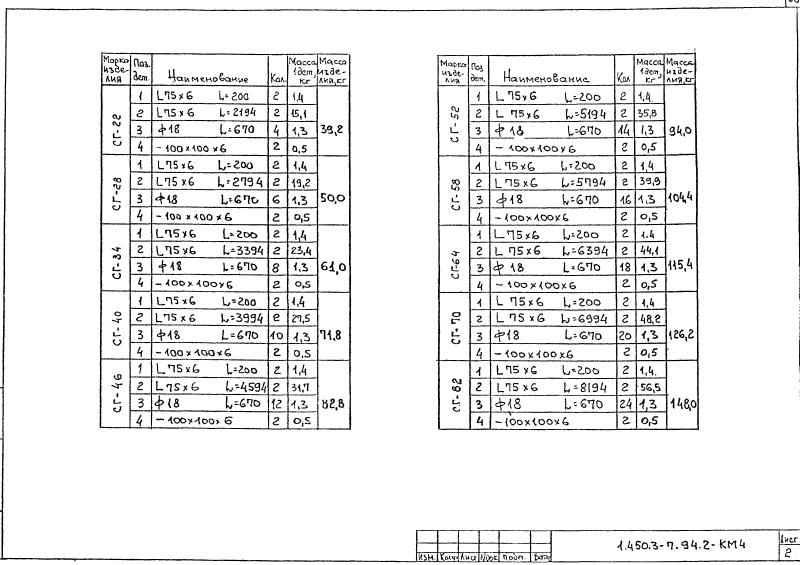 Марка изделия | Поз. дет. | Наименование | Кол. | Масса 1 дет, кг | Масса изделия, кг
СГ-22 | 1 | L 75×6 L=200 | 2 | 1,4 | 39,2
2 | L 75×6 L=2194 | 2 | 15,1
3 | ф 18 L=670 | 4 | 1,3
4 | - 100×100×6 | 2 | 0,5
СГ-28 | 1 | L 75×6 L=200 | 2 | 1,4 | 50,0
2 | L 75×6 L=2794 | 2 | 19,2
3 | ф 18 L=670 | 6 | 1,3
4 | - 100×100×6 | 2 | 0,5
СГ-34 | 1 | L 75×6 L=200 | 2 | 1,4 | 61,0
2 | L 75×6 L=3394 | 2 | 23,4
3 | ф 18 L=670 | 8 | 1,3
4 | - 100×100×6 | 2 | 0,5
СГ-40 | 1 | L 75×6 L=200 | 2 | 1,4 | 71,8
2 | L 75×6 L=3994 | 2 | 27,5
3 | ф 18 L=670 | 10 | 1,3
4 | - 100×100×6 | 2 | 0,5
СГ-46 | 1 | L 75×6 L=200 | 2 | 1,4 | 82,8
2 | L 75×6 L=4594 | 2 | 31,7
3 | ф 18 L=670 | 12 | 1,3
4 | - 100×100×6 | 2 | 0,5
Марка изделия | Поз. дет. | Наименование | Кол | Масса 1 дет, кг | Масса изделия, кг
СГ-52 | 1 | L 75×6 L=200 | 2 | 1,4 | 94,0
2 | L 75×6 L=5194 | 2 | 35,8
3 | ф 18 L=670 | 14 | 1,3
4 | - 100×100×6 | 2 | 0,5
СГ-58 | 1 | L 75×6 L=200 | 2 | 1,4 | 104,4
2 | L 75×6 L=5794 | 2 | 39,9
3 | ф 18 L=670 | 16 | 1,3
4 | - 100×100×6 | 2 | 0,5
СГ-64 | 1 | L 75×6 L=200 | 2 | 1.4 | 115,4
2 | L 75×6 L=6394 | 2 | 44,1
3 | ф 18 L=670 | 18 | 1,3
4 | - 100×100×6 | 2 | 0,5
СГ-70 | 1 | L 75×6 L=200 | 2 | 1,4 | 126,2
2 | L 75×6 L=6994 | 2 | 48,2
3 | ф 18 L=670 | 20 | 1,3
4 | - 100×100×6 | 2 | 0,5
СГ-82 | 1 | L 75×6 L=200 | 2 | 1,4 | 148,0
2 | L 75×6 L=8194 | 2 | 56,5
3 | ф 18 L=670 | 24 | 1,3
4 | - 100×100×6 | 2 | 0,5
Изм. Кол.уч Лист №док Подп. Дата
1.450.3-7.94.2-КМ4
Лист
2